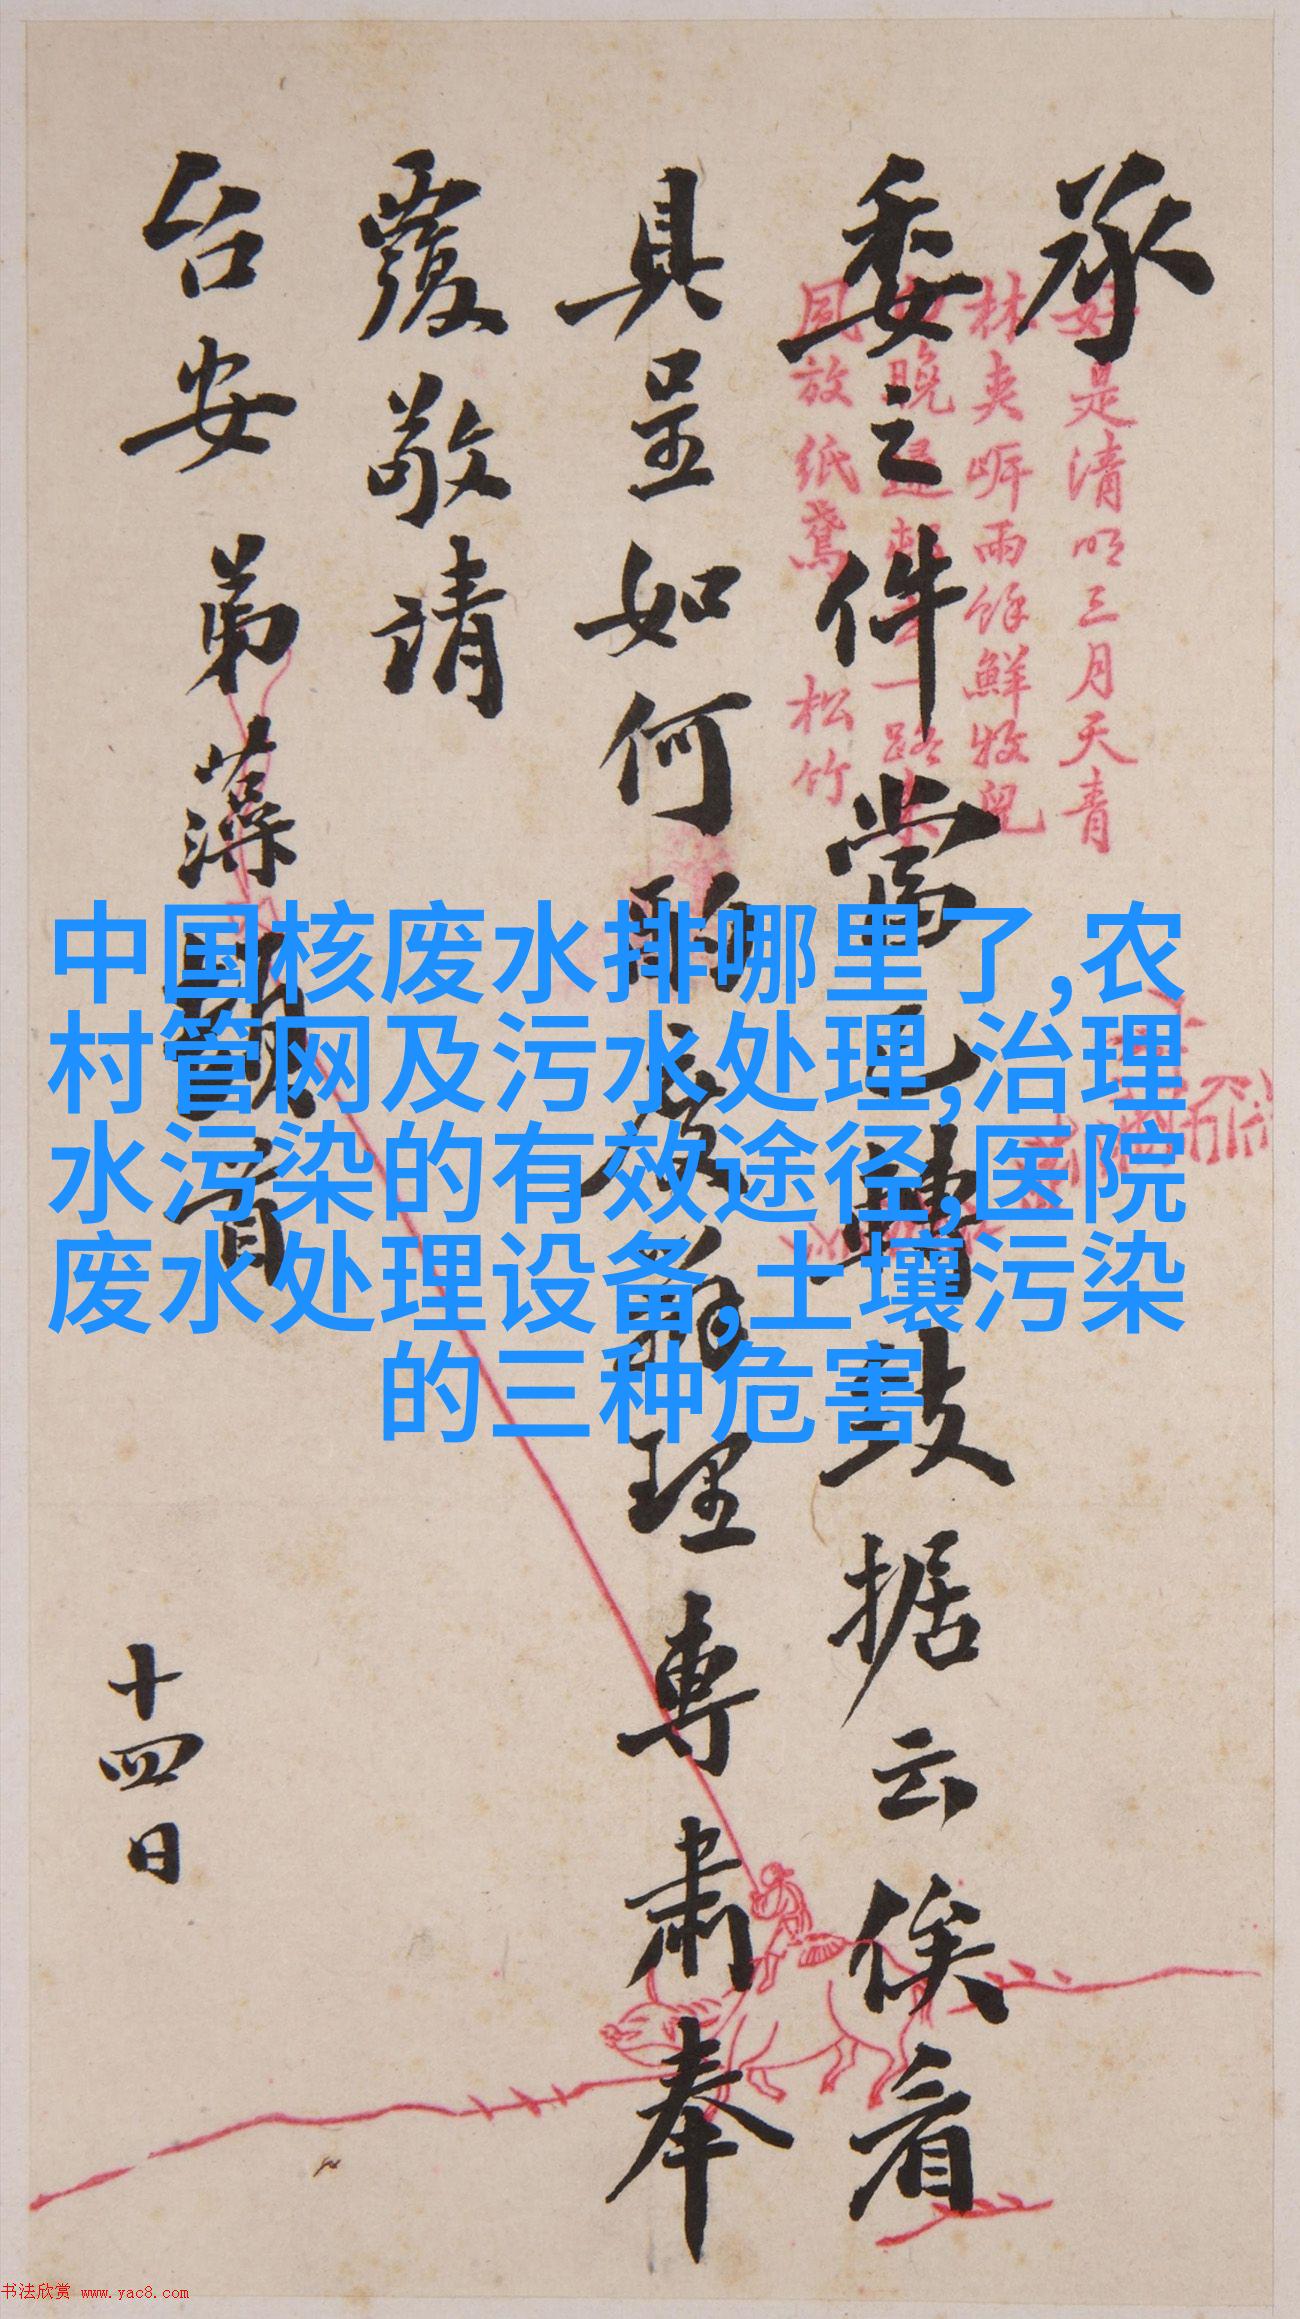 承
委之件當已轉致据云俟看
具呈如何酌辦理專肅奉
覆敬请
台安 弟藻顿首
十四日
好是清明三月天青
林夹岸雨馀鲜牧儿
向晚一路
同放纸鸢 松竹
中国核废水排哪里了,农
村管网及污水处理,治理
水污染的有效途径,医院
废水处理设备,土壤污染
的三种危害
书法欣赏 www.yac8.com